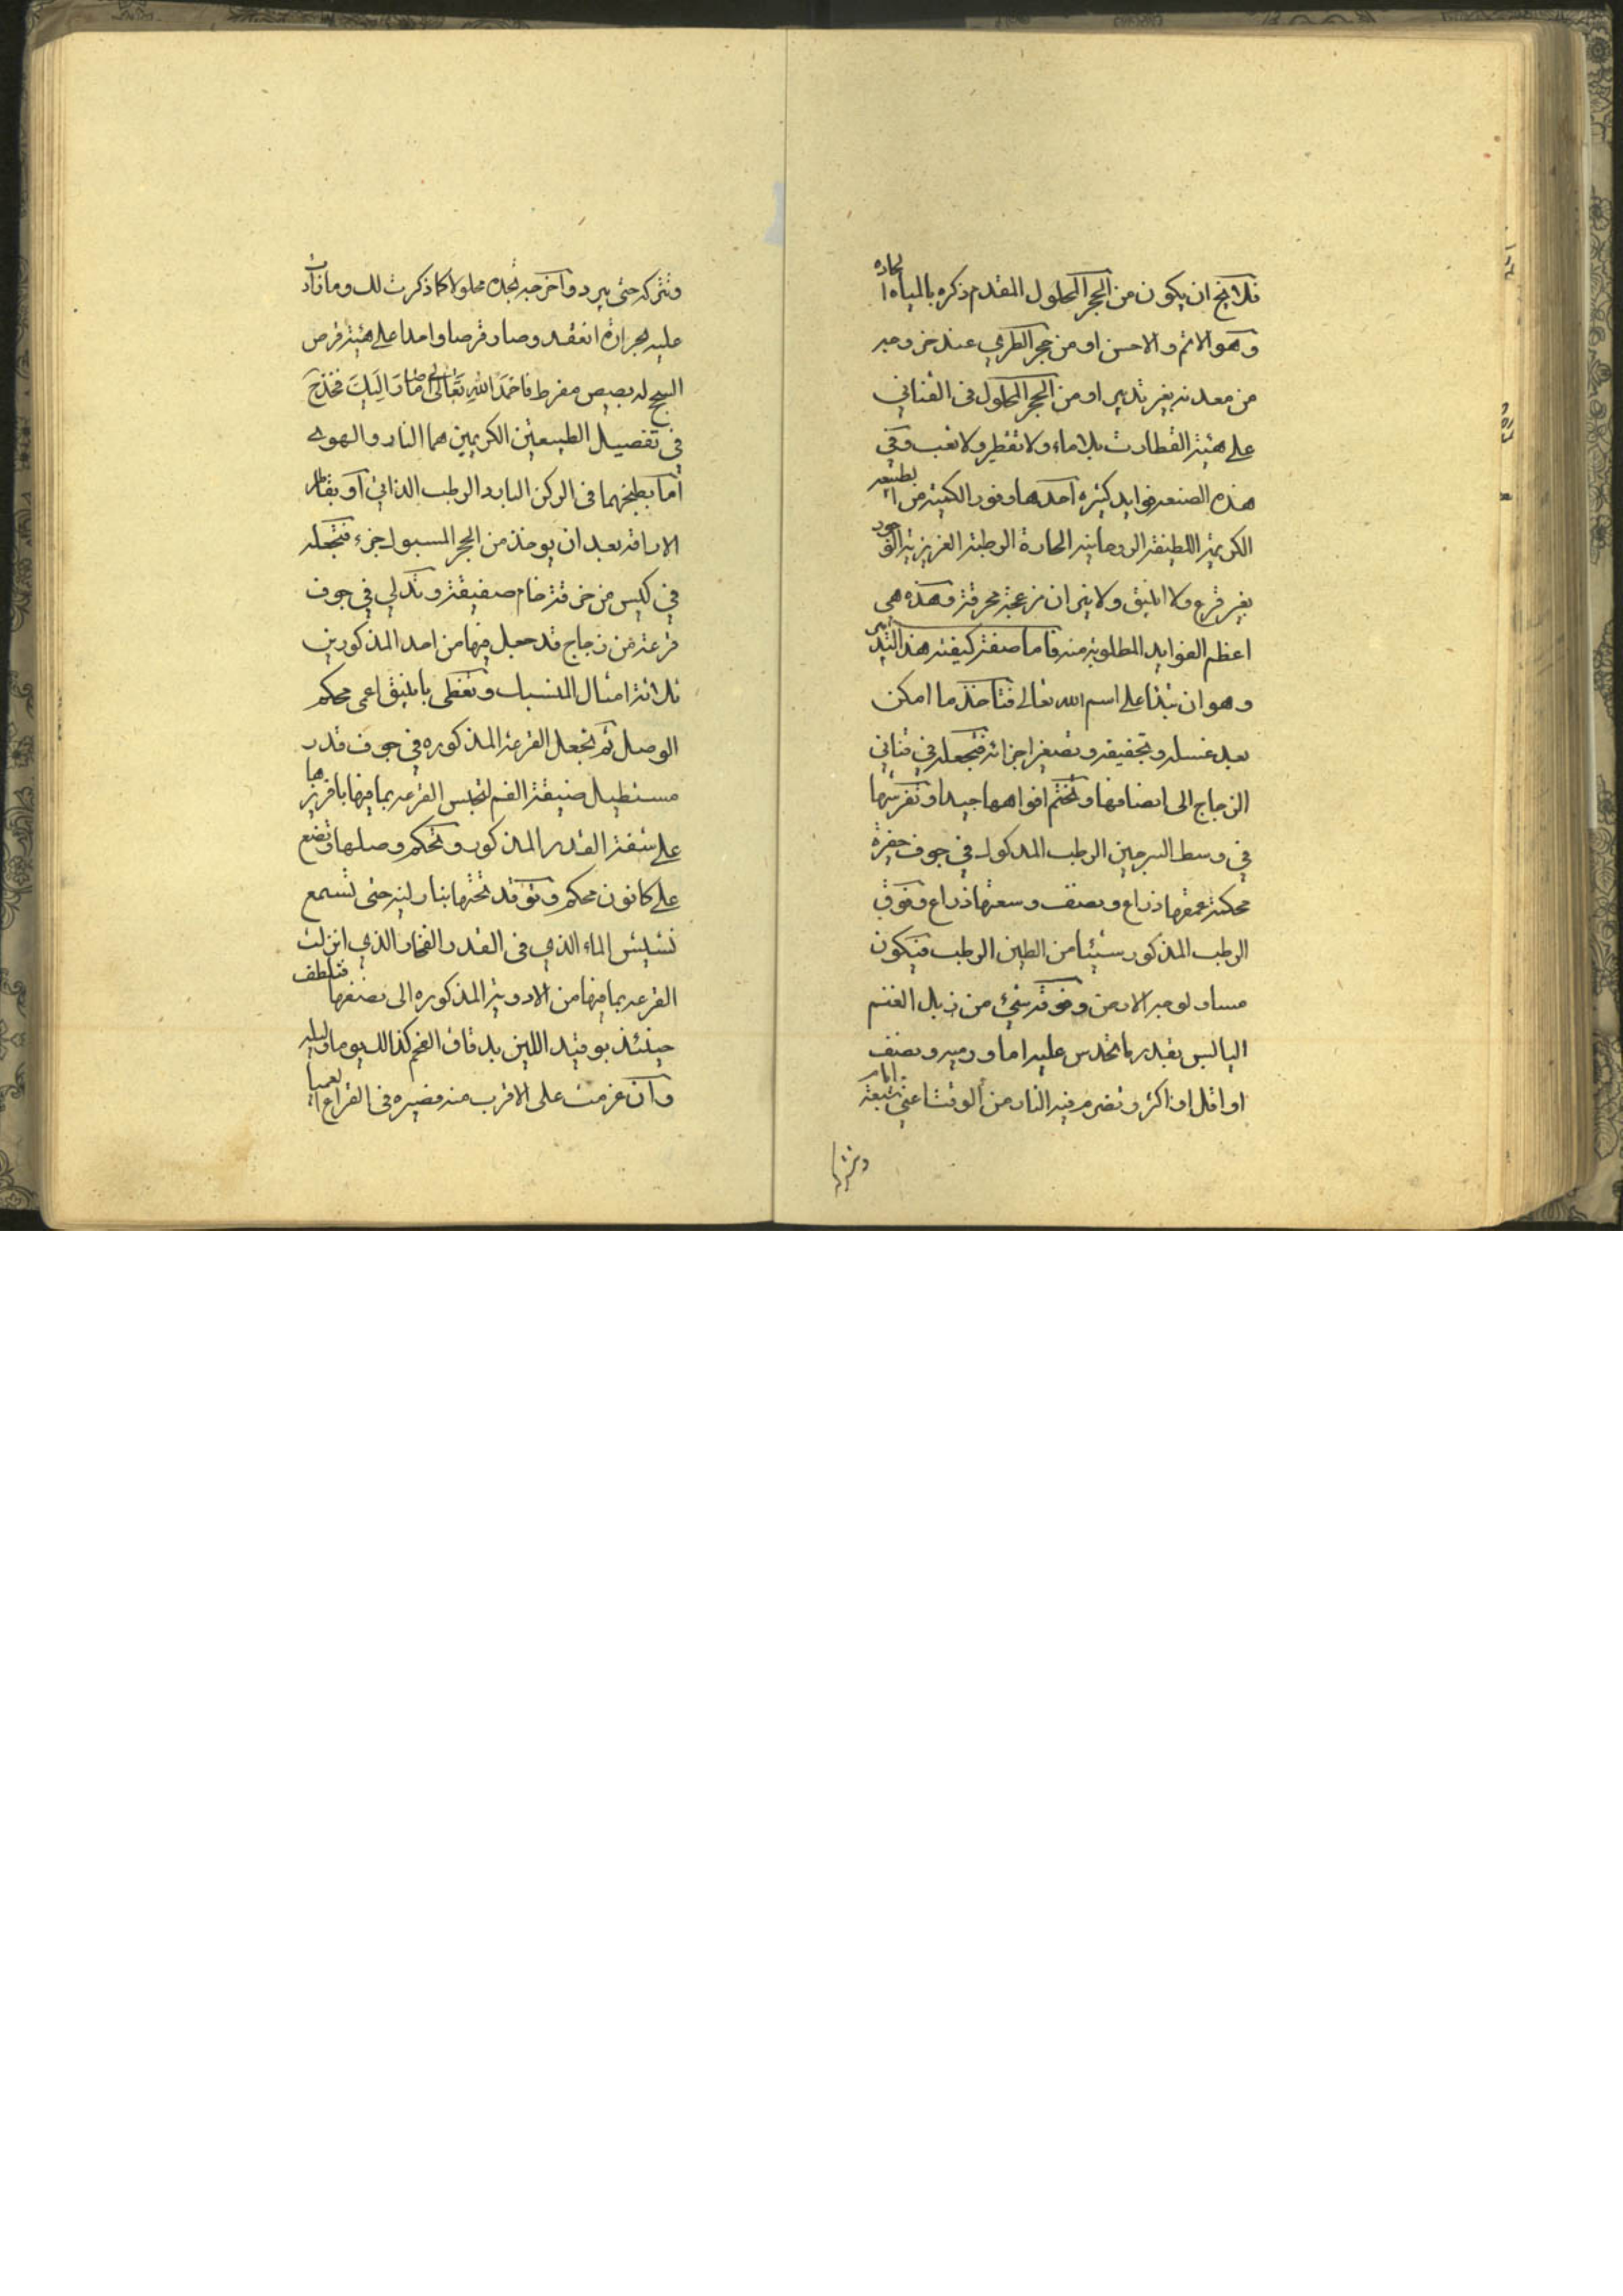 فلا يخ ان يكون من الحجر المحلول المقدم ذكره بالمياه الحاده
وهو الاتم والاحسن او من حجر الطري عند خروجه
من معدنه بغير تدبير او من الحجر المحلول فى القنانى
على هيئة القطارت بلا ماء ولا تقطير ولا تعب وفى
هذه الصنعه فوايد كثيره احدها وفور الكمية من الطبيعه
الكريمة اللطيفة الروحانيه الحارة الرطبة الغريزية الوجود
بغير قرع ولا انبيق ولا نيران مزعجة محرقة وهذه هى
اعظم الفوايد المطلوبة منه فاما صفة كيفية هذا التدبير
وهو ان تبدا على اسم الله تعالى فتاخذ ما امكن
بعد غسله وتجفيفه وتصغير اجزائه فتجعله في قناني
الزجاج الى انصافها وتختم افواهها جيدا وتفرشها
في وسط السرجين الرطب المذكور في جوف حفرة
محكمة عمقها ذراع ونصف وسعتها ذراع وفوق
الرطب المذكور شيئا من الطين الرطب فيكون
مساو لوجه الارض وفوقه شئ من زبل الغنم
اليابس بقدر ما تحدس عليه اما ورميه ونصف
او اقل او اكثر وتضرم فيه النار من الوقت اعني سبعة ايام
وتتركه حتى يبرد واخرجه تجده محلولا كما ذكرت لك وما زادت
عليه حرارة انعقد وصار قرصا واحدا على هيئة قرص
السبج له بصيص مفرط فاحمد الله تعالى على ما صار اليك فخذ ح
في تفصيل الطبيعتين الكريمين هما النار والهوى
اما بطبخهما فى الركن البارد الرطب الذاتى او بقاطر
الاراقه بعد ان يوخذ من الحجر المسبوك جزء فتجعله
في كيس من خرقة خام صفيقة وتدلي في جوف
قرعة من زجاج قد جعل فيها من احد المذكورين
ثلاثة امثال المنسبك وتغطى بانبيق اعمى محكم
الوصل ثم تجعل القرعة المذكوره في جوف قدر
مستطيل ضيقة الفم لتجلس القرعه بما فيها بافريزها
على شفة القدر المذكور وتحكم وصلها وتضع
على كانون محكم وتوقد تحتها بنار لينه حتى تسمع
نشيش الماء الذي فى القدر الفخار الذي انزلت
القرعه بما فيها من الادوية المذكوره الى نصفها فتلطف
حينئذ بوقيد اللين بدقاق الفحم كذالك يوما وليله
وان عزمت على الاقرب منه فصيره فى القراع العميا